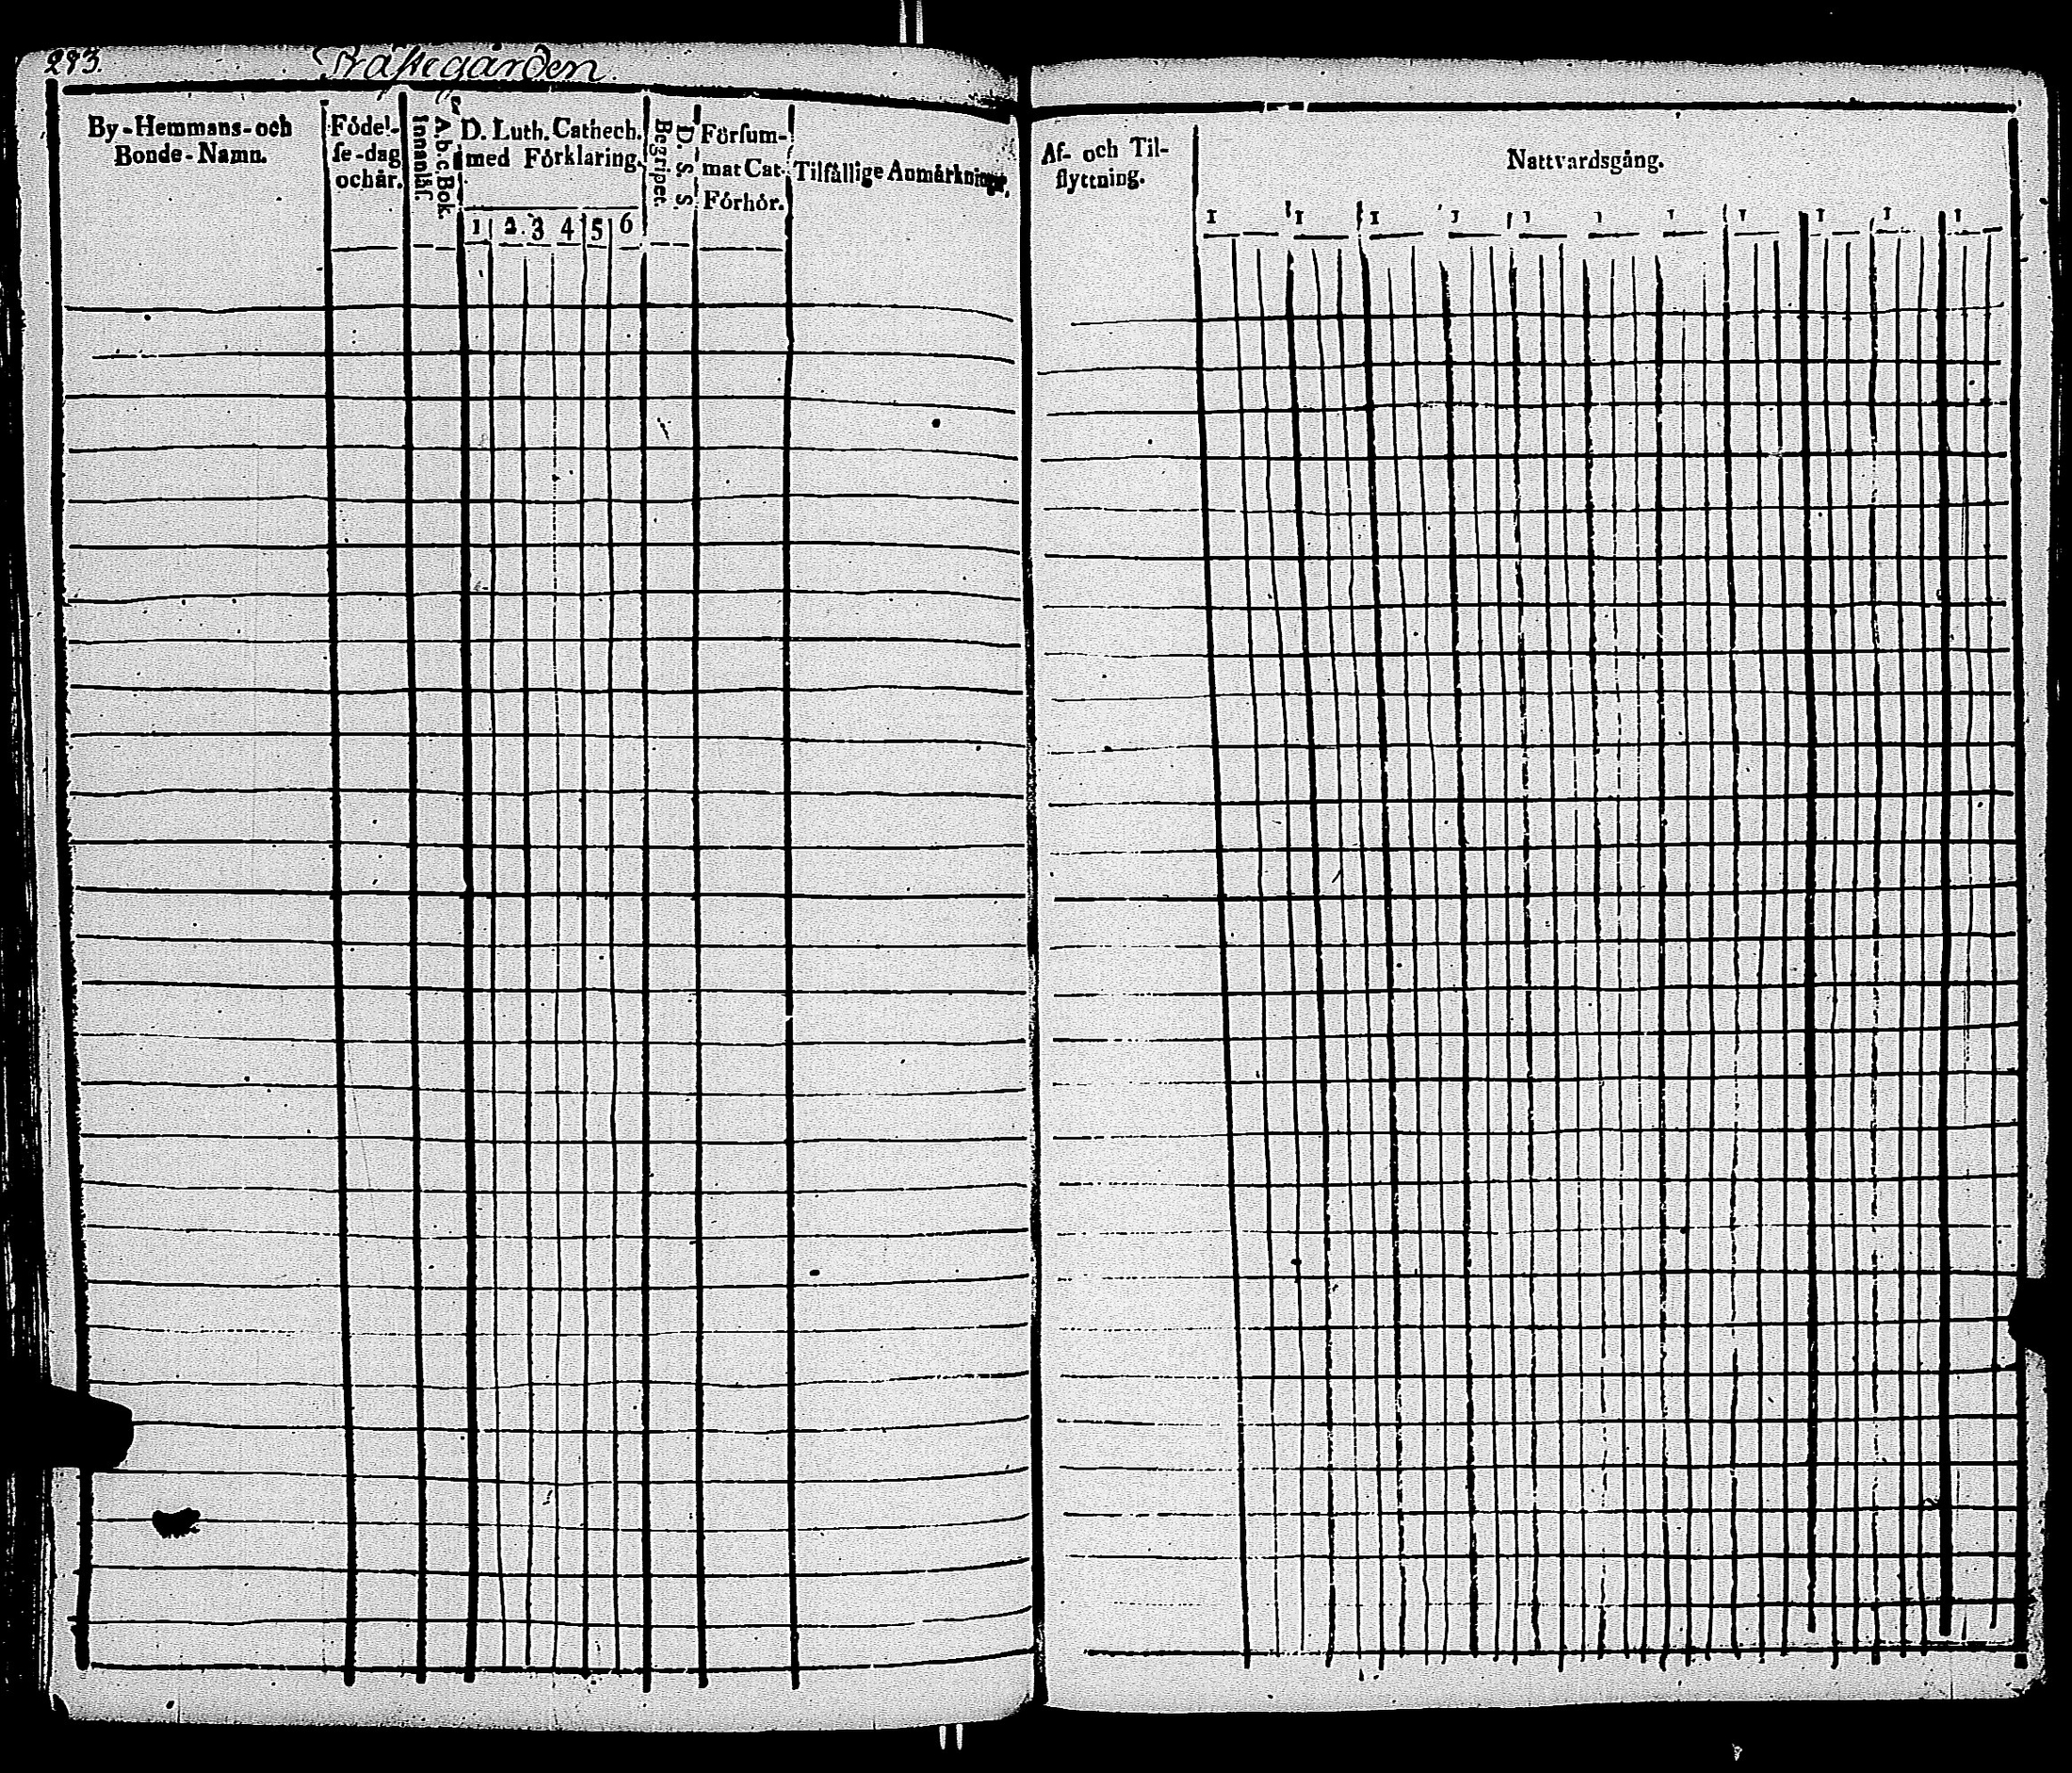 283. Prästegården
By-Hemmans-och
Bonde-Namn.
Födel-
se-dag
och år.
A.b.c. Bok.
Innanläs.
D. Luth. Cathech.
med Förklaring.
1 2. 3 4 5 6
D. S. S.
Begriper.
Försum-
mat Cat-
Förhör.
Tilfällige Anmärkningar,
Af- och Til-
flyttning.
Nattvardsgång.
1 1 1 1 1 1 1 1 1 1 1